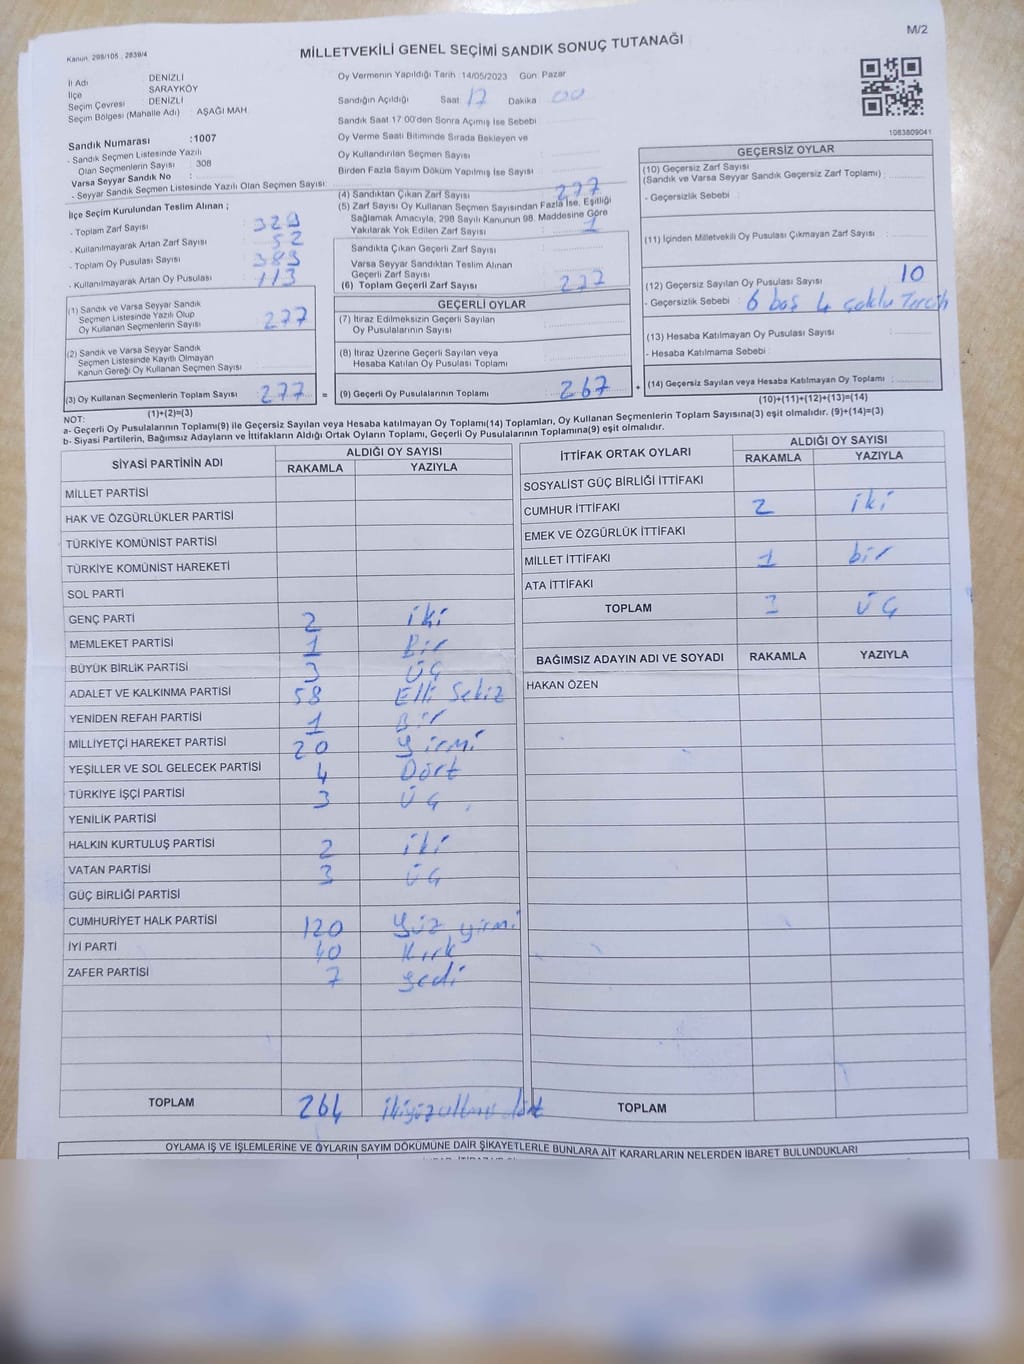 Kanun, 298/105 , 2839/4
MİLLETVEKİLİ GENEL SEÇİMİ SANDIK SONUÇ TUTANAĞI
M/2
İl Adı DENİZLİ
İlçe SARAYKÖY
Seçim Çevresi DENİZLİ
Seçim Bölgesi (Mahalle Adı) : AŞAĞI MAH.
Oy Vermenin Yapıldığı Tarih : 14/05/2023 Gün: Pazar
Sandığın Açıldığı Saat 17 Dakika 00
Sandık Saat 17.00'den Sonra Açılmış İse Sebebi
Oy Verme Saati Bitiminde Sırada Bekleyen ve
Oy Kullandırılan Seçmen Sayısı
Birden Fazla Sayım Döküm Yapılmış İse Sayısı
1083809041
Sandık Numarası :1007
- Sandık Seçmen Listesinde Yazılı
Olan Seçmenlerin Sayısı : 308
Varsa Seyyar Sandık No :
- Seyyar Sandık Seçmen Listesinde Yazılı Olan Seçmen Sayısı:
İlçe Seçim Kurulundan Teslim Alınan ;
- Toplam Zarf Sayısı
- Kullanılmayarak Artan Zarf Sayısı 52
- Toplam Oy Pusulası Sayısı
- Kullanılmayarak Artan Oy Pusulası 113
(1) Sandık ve Varsa Seyyar Sandık
Seçmen Listesinde Yazılı Olup
Oy Kullanan Seçmenlerin Sayısı 277
(2) Sandık ve Varsa Seyyar Sandık
Seçmen Listesinde Kayıtlı Olmayan
Kanun Gereği Oy Kullanan Seçmen Sayısı
(3) Oy Kullanan Seçmenlerin Toplam Sayısı 277 =
(1)+(2)=(3)
(4) Sandıktan Çıkan Zarf Sayısı 277
(5) Zarf Sayısı Oy Kullanan Seçmen Sayısından Fazla İse, Eşitliği
Sağlamak Amacıyla, 298 Sayılı Kanunun 98. Maddesine Göre
Yakılarak Yok Edilen Zarf Sayısı 1
Sandıkta Çıkan Geçerli Zarf Sayısı
Varsa Seyyar Sandıktan Teslim Alınan
Geçerli Zarf Sayısı
(6) Toplam Geçerli Zarf Sayısı 277
GEÇERLİ OYLAR
(7) İtiraz Edilmeksizin Geçerli Sayılan
Oy Pusulalarının Sayısı
(8) İtiraz Üzerine Geçerli Sayılan veya
Hesaba Katılan Oy Pusulası Toplamı
(9) Geçerli Oy Pusulalarının Toplamı 267 +
GEÇERSİZ OYLAR
(10) Geçersiz Zarf Sayısı
(Sandık ve Varsa Seyyar Sandık Geçersiz Zarf Toplamı) :
- Geçersizlik Sebebi :
(11) İçinden Milletvekili Oy Pusulası Çıkmayan Zarf Sayısı :
(12) Geçersiz Sayılan Oy Pusulası Sayısı 10
- Geçersizlik Sebebi : 6 boş 4 çoklu Tercih
(13) Hesaba Katılmayan Oy Pusulası Sayısı
- Hesaba Katılmama Sebebi
(14) Geçersiz Sayılan veya Hesaba Katılmayan Oy Toplamı :
(10)+(11)+(12)+(13)=(14)
NOT:
a- Geçerli Oy Pusulalarının Toplamı(9) ile Geçersiz Sayılan veya Hesaba katılmayan Oy Toplamı(14) Toplamları, Oy Kullanan Seçmenlerin Toplam Sayısına(3) eşit olmalıdır. (9)+(14)=(3)
b- Siyasi Partilerin, Bağımsız Adayların ve İttifakların Aldığı Ortak Oyların Toplamı, Geçerli Oy Pusulalarının Toplamına(9) eşit olmalıdır.
SİYASİ PARTİNİN ADI ALDIĞI OY SAYISI
RAKAMLA YAZIYLA
MİLLET PARTİSİ
HAK VE ÖZGÜRLÜKLER PARTİSİ
TÜRKİYE KOMÜNİST PARTİSİ
TÜRKİYE KOMÜNİST HAREKETİ
SOL PARTİ
GENÇ PARTİ 2 iki
MEMLEKET PARTİSİ 1 Bir
BÜYÜK BİRLİK PARTİSİ 3 Üç
ADALET VE KALKINMA PARTİSİ 58 Elli Sekiz
YENİDEN REFAH PARTİSİ 1 Bir
MİLLİYETÇİ HAREKET PARTİSİ 20 Yirmi
YEŞİLLER VE SOL GELECEK PARTİSİ 4 Dört
TÜRKİYE İŞÇİ PARTİSİ 3 Üç
YENİLİK PARTİSİ
HALKIN KURTULUŞ PARTİSİ 2 iki
VATAN PARTİSİ 3 Üç
GÜÇ BİRLİĞİ PARTİSİ
CUMHURİYET HALK PARTİSİ 120 Yüz yirmi
İYİ PARTİ 40 Kırk
ZAFER PARTİSİ 7 Yedi
TOPLAM 264 ikiyüzaltmış dört
İTTİFAK ORTAK OYLARI ALDIĞI OY SAYISI
RAKAMLA YAZIYLA
SOSYALİST GÜÇ BİRLİĞİ İTTİFAKI
CUMHUR İTTİFAKI 2 iki
EMEK VE ÖZGÜRLÜK İTTİFAKI
MİLLET İTTİFAKI 1 bir
ATA İTTİFAKI
TOPLAM 3 ÜÇ
BAĞIMSIZ ADAYIN ADI VE SOYADI RAKAMLA YAZIYLA
HAKAN ÖZEN
TOPLAM
OYLAMA İŞ VE İŞLEMLERİNE VE OYLARIN SAYIM DÖKÜMÜNE DAİR ŞİKAYETLERLE BUNLARA AİT KARARLARIN NELERDEN İBARET BULUNDUKLARI